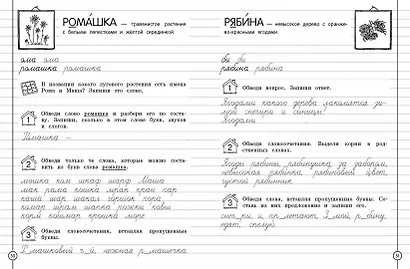 РОМА́ШКА — травянистое растение
с белыми лепестками и жёлтой серединкой.
ома ома
ромашка ромашка
В названии какого лугового растения есть имена
Рома и Маша? Запиши это слово.
1 Обведи слово ромашка и разбери его по составу.
Запиши, сколько в этом слове букв, звуков
и слогов.
Ромашка —
2 Обведи только те слова, которые можно составить
из букв слова ромашка.
мошка ком шкаф шарф Маша
мак рама кошка мрак кран пар
каша шар шакал горшок пора
комар шрам шапка рожки ковш
корм кошмар крошка море
3 Обведи слова, вставляя пропущенные
буквы.
Р_машковый ч_й, нежная р_машечка.
50
РЯБИ́НА — невысокое дерево с оранжево-красными
ягодами.
би би
рябина рябина
1 Обведи вопрос. Запиши ответ.
Ягодами какого дерева лакомятся зимой
снегири и синицы?
Ягодами
2 Обведи словосочетания. Выдели корни в родственных
словах.
Ягоды рябины, рябинушка за забором,
невысокая рябинка, рябиновый цвет,
густой рябинник.
3 Обведи слова, вставляя пропущенные буквы. Составь
из них предложение и запиши его.
снег_ри, и, пр_летают, З_мой, р_бину,
едят, спелую
51